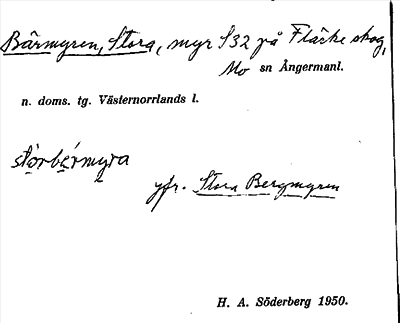 Bärmyren, Stora, myr S32 på Flärke skog,
Mo sn Ångermanl.
n. doms. tg. Västernorrlands l.
stòrbérmyra
yfr. Stora Bergmyren
H. A. Söderberg 1950.